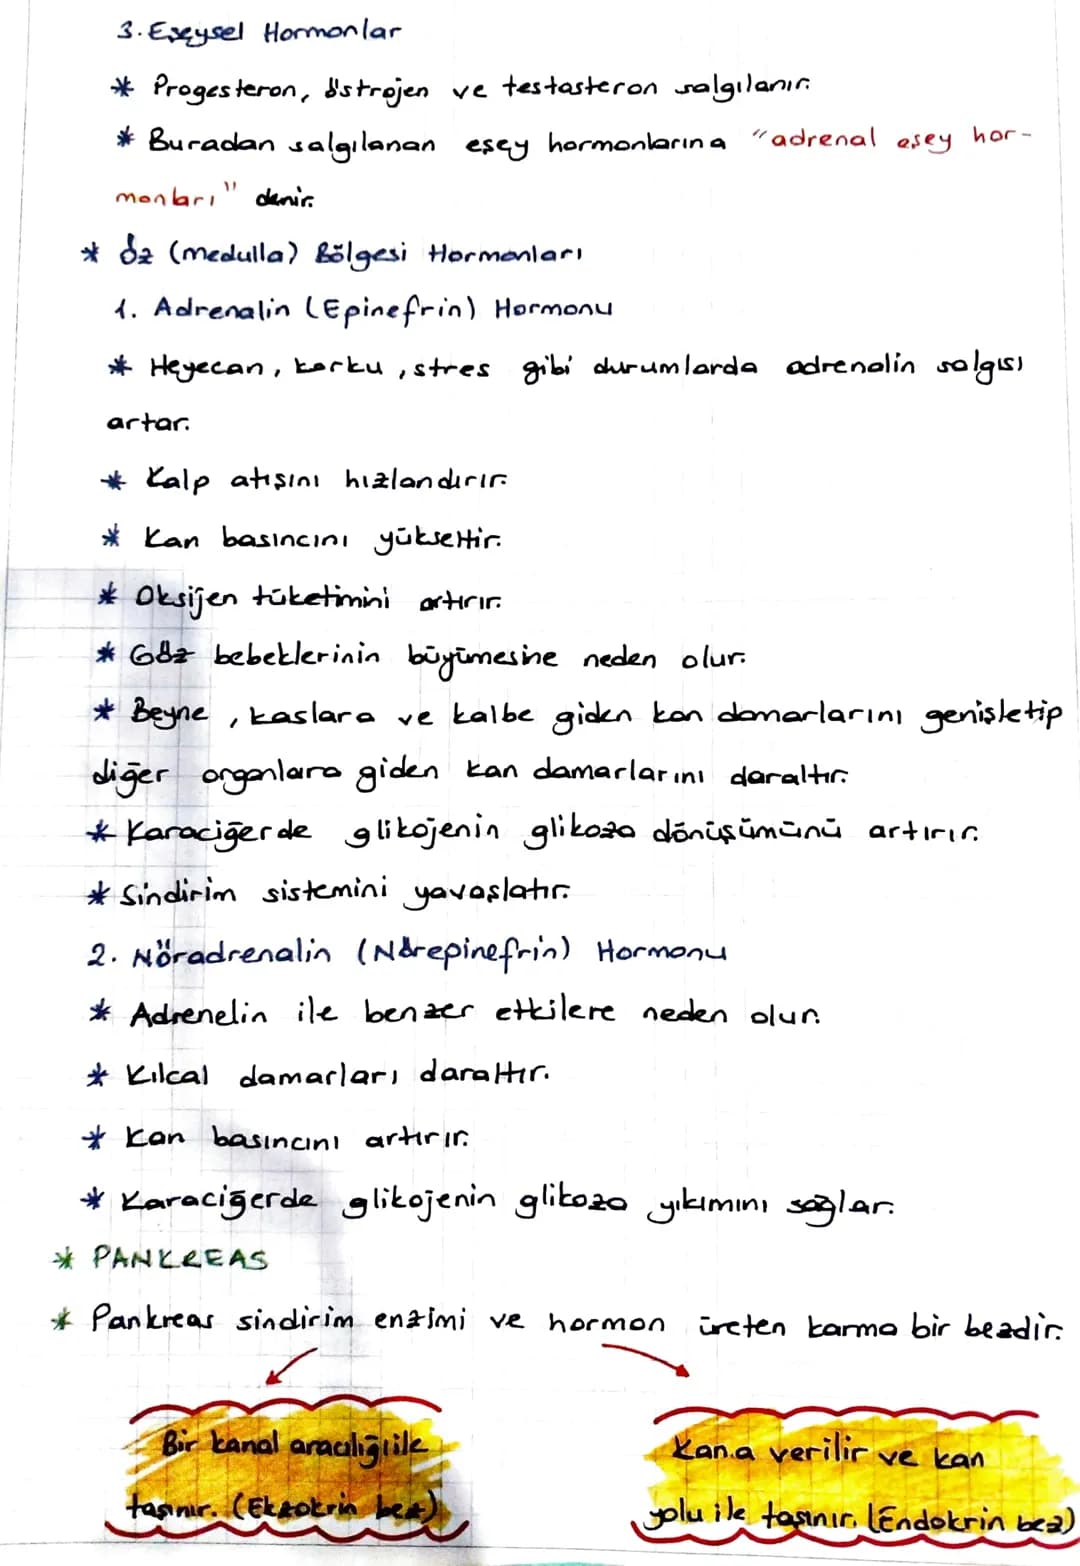 3. Eşeysel Hormonlar
* Progesteron, östrojen ve testosteron salgılanır.
* Buradan salgılanan eşey hormonlarına "adrenal eşey hor-
monları" denir.
* Öz (medulla) Bölgesi Hormonları
1. Adrenalin (Epinefrin) Hormonu
* Heyecan, korku, stres gibi durumlarda adrenalin salgısı
artar.
* Kalp atışını hızlandırır.
* Kan basıncını yükseltir.
* Oksijen tüketimini artırır.
* Göz bebeklerinin büyümesine neden olur.
* Beyne, kaslara ve kalbe giden kan damarlarını genişletip
diğer organlara giden kan damarlarını daraltır.
* Karaciğerde glikojenin glikoza dönüşümünü artırır.
* Sindirim sistemini yavaşlatır.
2. Nöradrenalin (Nörepinefrin) Hormonu
* Adrenelin ile benzer etkilere neden olur.
* Kılcal damarları daraltır.
* Kan basıncını artırır.
* Karaciğerde glikojenin glikoza yıkımını sağlar.
* PANKREAS
* Pankreas sindirim enzimi ve hormon üreten karma bir bezdir.
Bir kanal aracılığı ile
taşınır. (Ekzokrin bez)
Kana verilir ve kan
yolu ile taşınır. (Endokrin bez)